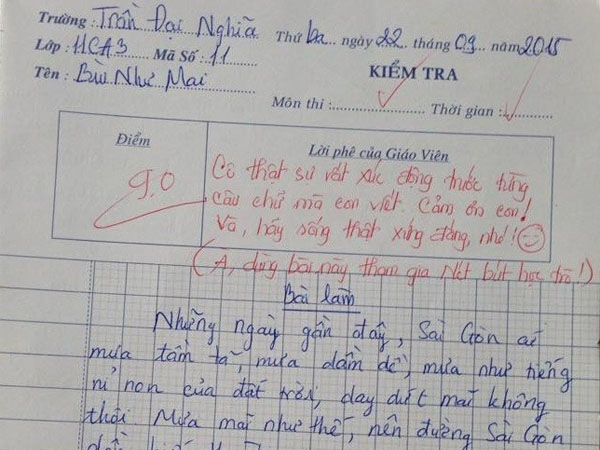 Trường : Trần Đại Nghĩa
Thứ ba ngày 22 tháng 09 năm 2015
Lớp : 11CA3 Mã Số : 11
Tên : Bùi Như Mai
KIỂM TRA
Môn thi : Thời gian :
Điểm
Lời phê của Giáo Viên
9.0
Cô thật sự rất xúc động trước từng
câu chữ mà con viết. Cảm ơn con!
Và, hãy sống thật xứng đáng, nhé!
(À, dùng bài này tham gia Nét bút học trò!)
Bài làm
Những ngày gần đây, Sài Gòn
mưa tầm tã, mưa dầm dề, mưa như tiếng
nỉ non của đất trời, day dứt mãi không
thôi. Mưa mãi như thế, nên đường Sài Gòn